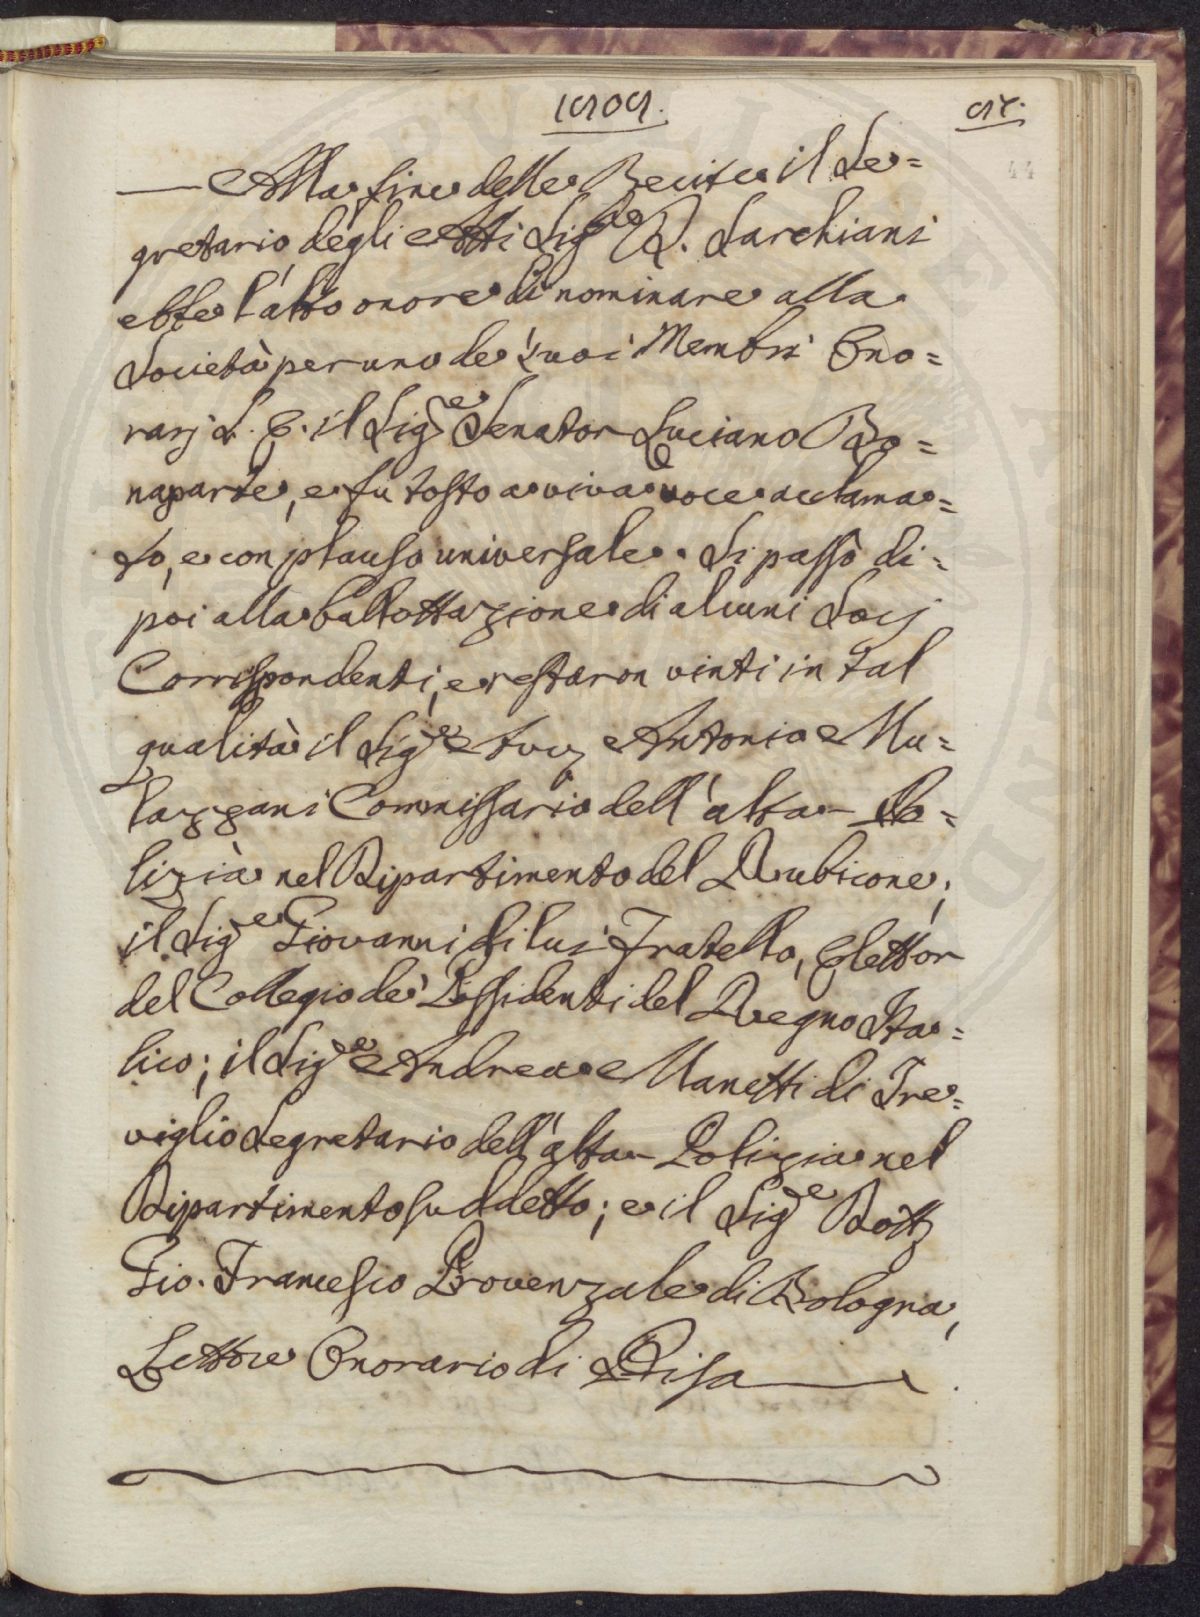 1808.
— Alla fine delle Recite il Se=
gretario degli Atti Sig.re D. Sarchiani
ebbe l'alto onore di nominare alla
Società per uno de' suoi Membri Ono=
rarj S. E. il Sig.re Senator Luciano Bo=
naparte, e fu tosto a viva voce acclama=
to, e con plauso universale. Si passò di=
poi alla ballottazione di alcuni Socj
Corrispondenti, e restaron vinti in tal
qualità il Sig.re Avv. Antonio Mu=
lazzani Commissario dell'alta Po=
lizia nel Dipartimento del Rubicone;
il Sig.re Giovanni di lui Fratello, Elettor
del Collegio de' Possidenti del Regno Ita=
lico; il Sig.re Andrea Manetti di Tre=
viglio Segretario dell'alta Polizia nel
Dipartimento suddetto; e il Sig.re Dott.
Gio. Francesco Provenzale di Bologna,
Lettore Onorario di Pisa